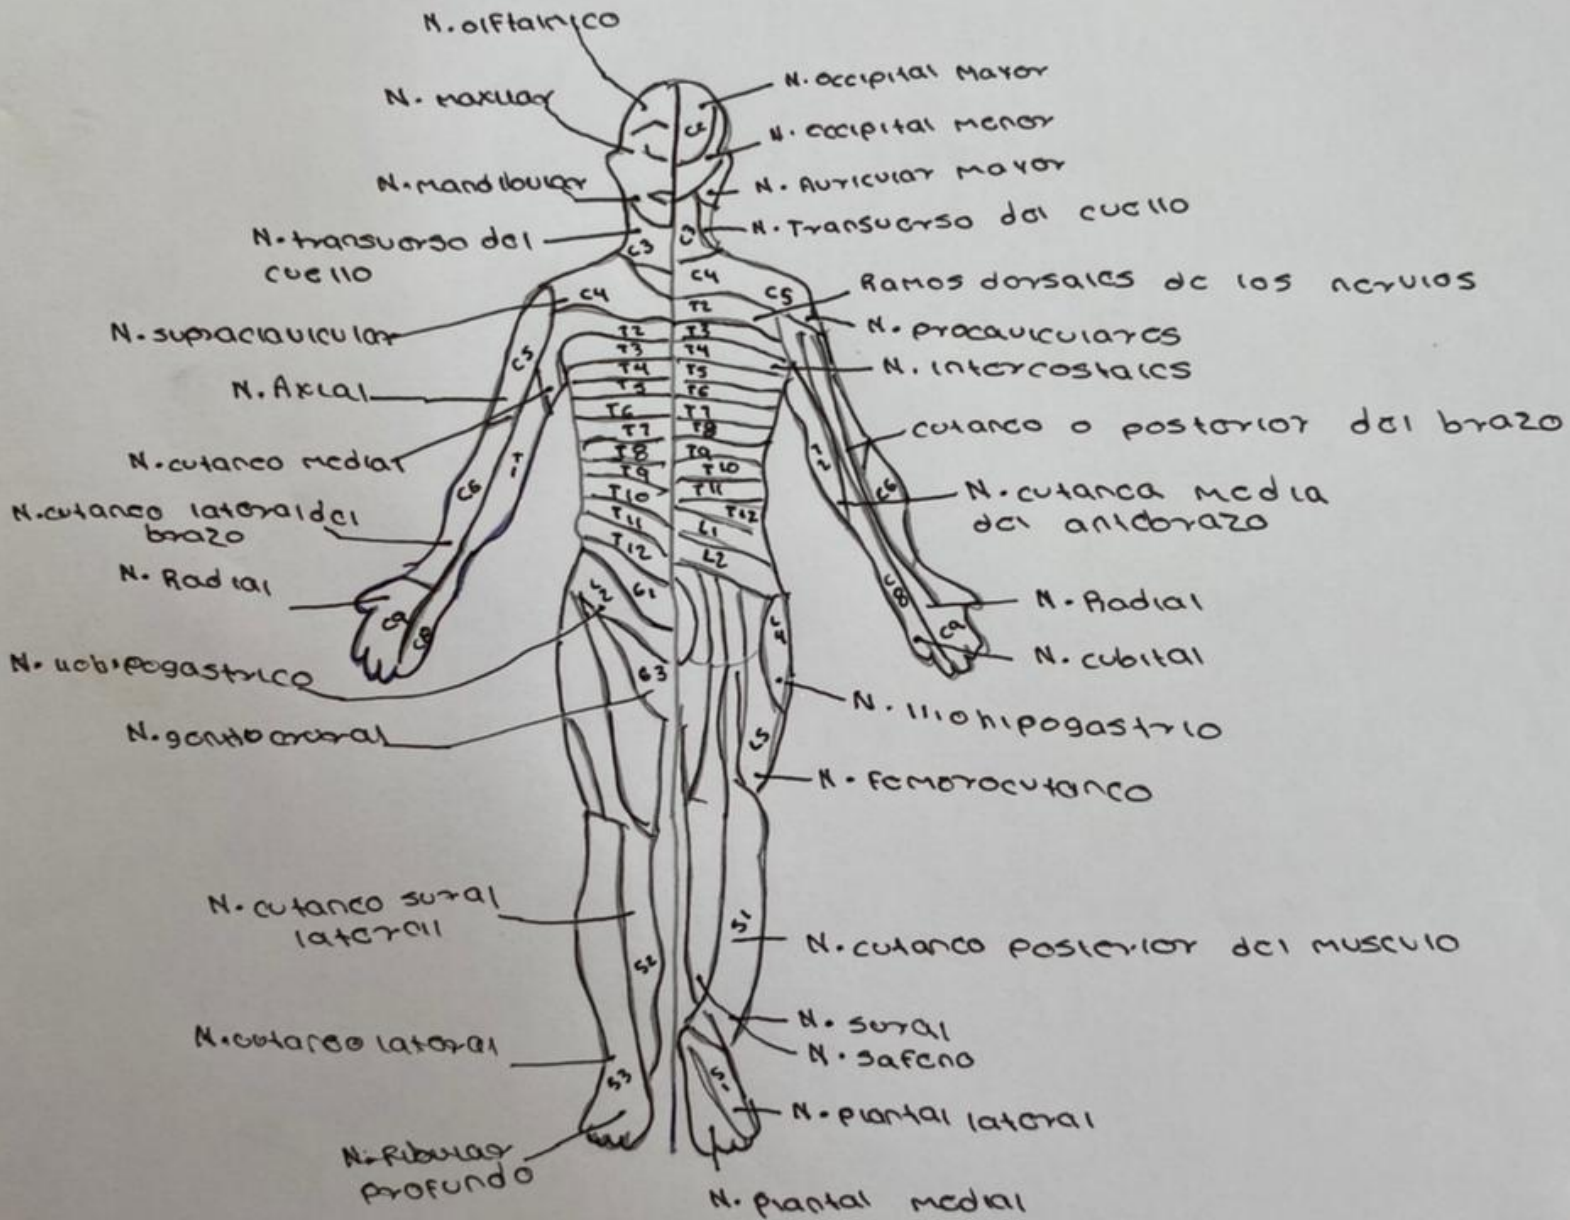 N. olftalmico
N. maxilar
N. mandibular
N. transverso del
cuello
N. supraclavicular
N. Axial
N. cutaneo medial
N. cutaneo lateral del
brazo
N. Radial
N. genitocrural
N. cutaneo sural
laterall
N. cutaneo lateral
N. Fibular
profundo
N. occipital Mayor
N. occipital menor
N. Auricular mayor
N. Transverso del cuello
Ramos dorsales de los nervios
N. procaviculares
N. intercostales
cutaneo o posterior del brazo
N. cutanea media
del antebrazo
N. Radial
N. cubital
N. iliohipogastrio
N. Femorocutaneo
N. cutaneo posterior del musculo
N. sural
N. safeno
N. plantal lateral
N. plantal medial
C2
C3
C3
C4
C4
C5
T2
T2
T3
T3
T4
T4
T5
T5
T6
T6
T7
T7
T8
T8
T9
T9
T10
T10
T11
T11
T12
T12
L1
L2
C5
C6
T1
C9
C8
T2
C6
C8
C9
L2
G1
G3
L4
C5
S1
S2
S3